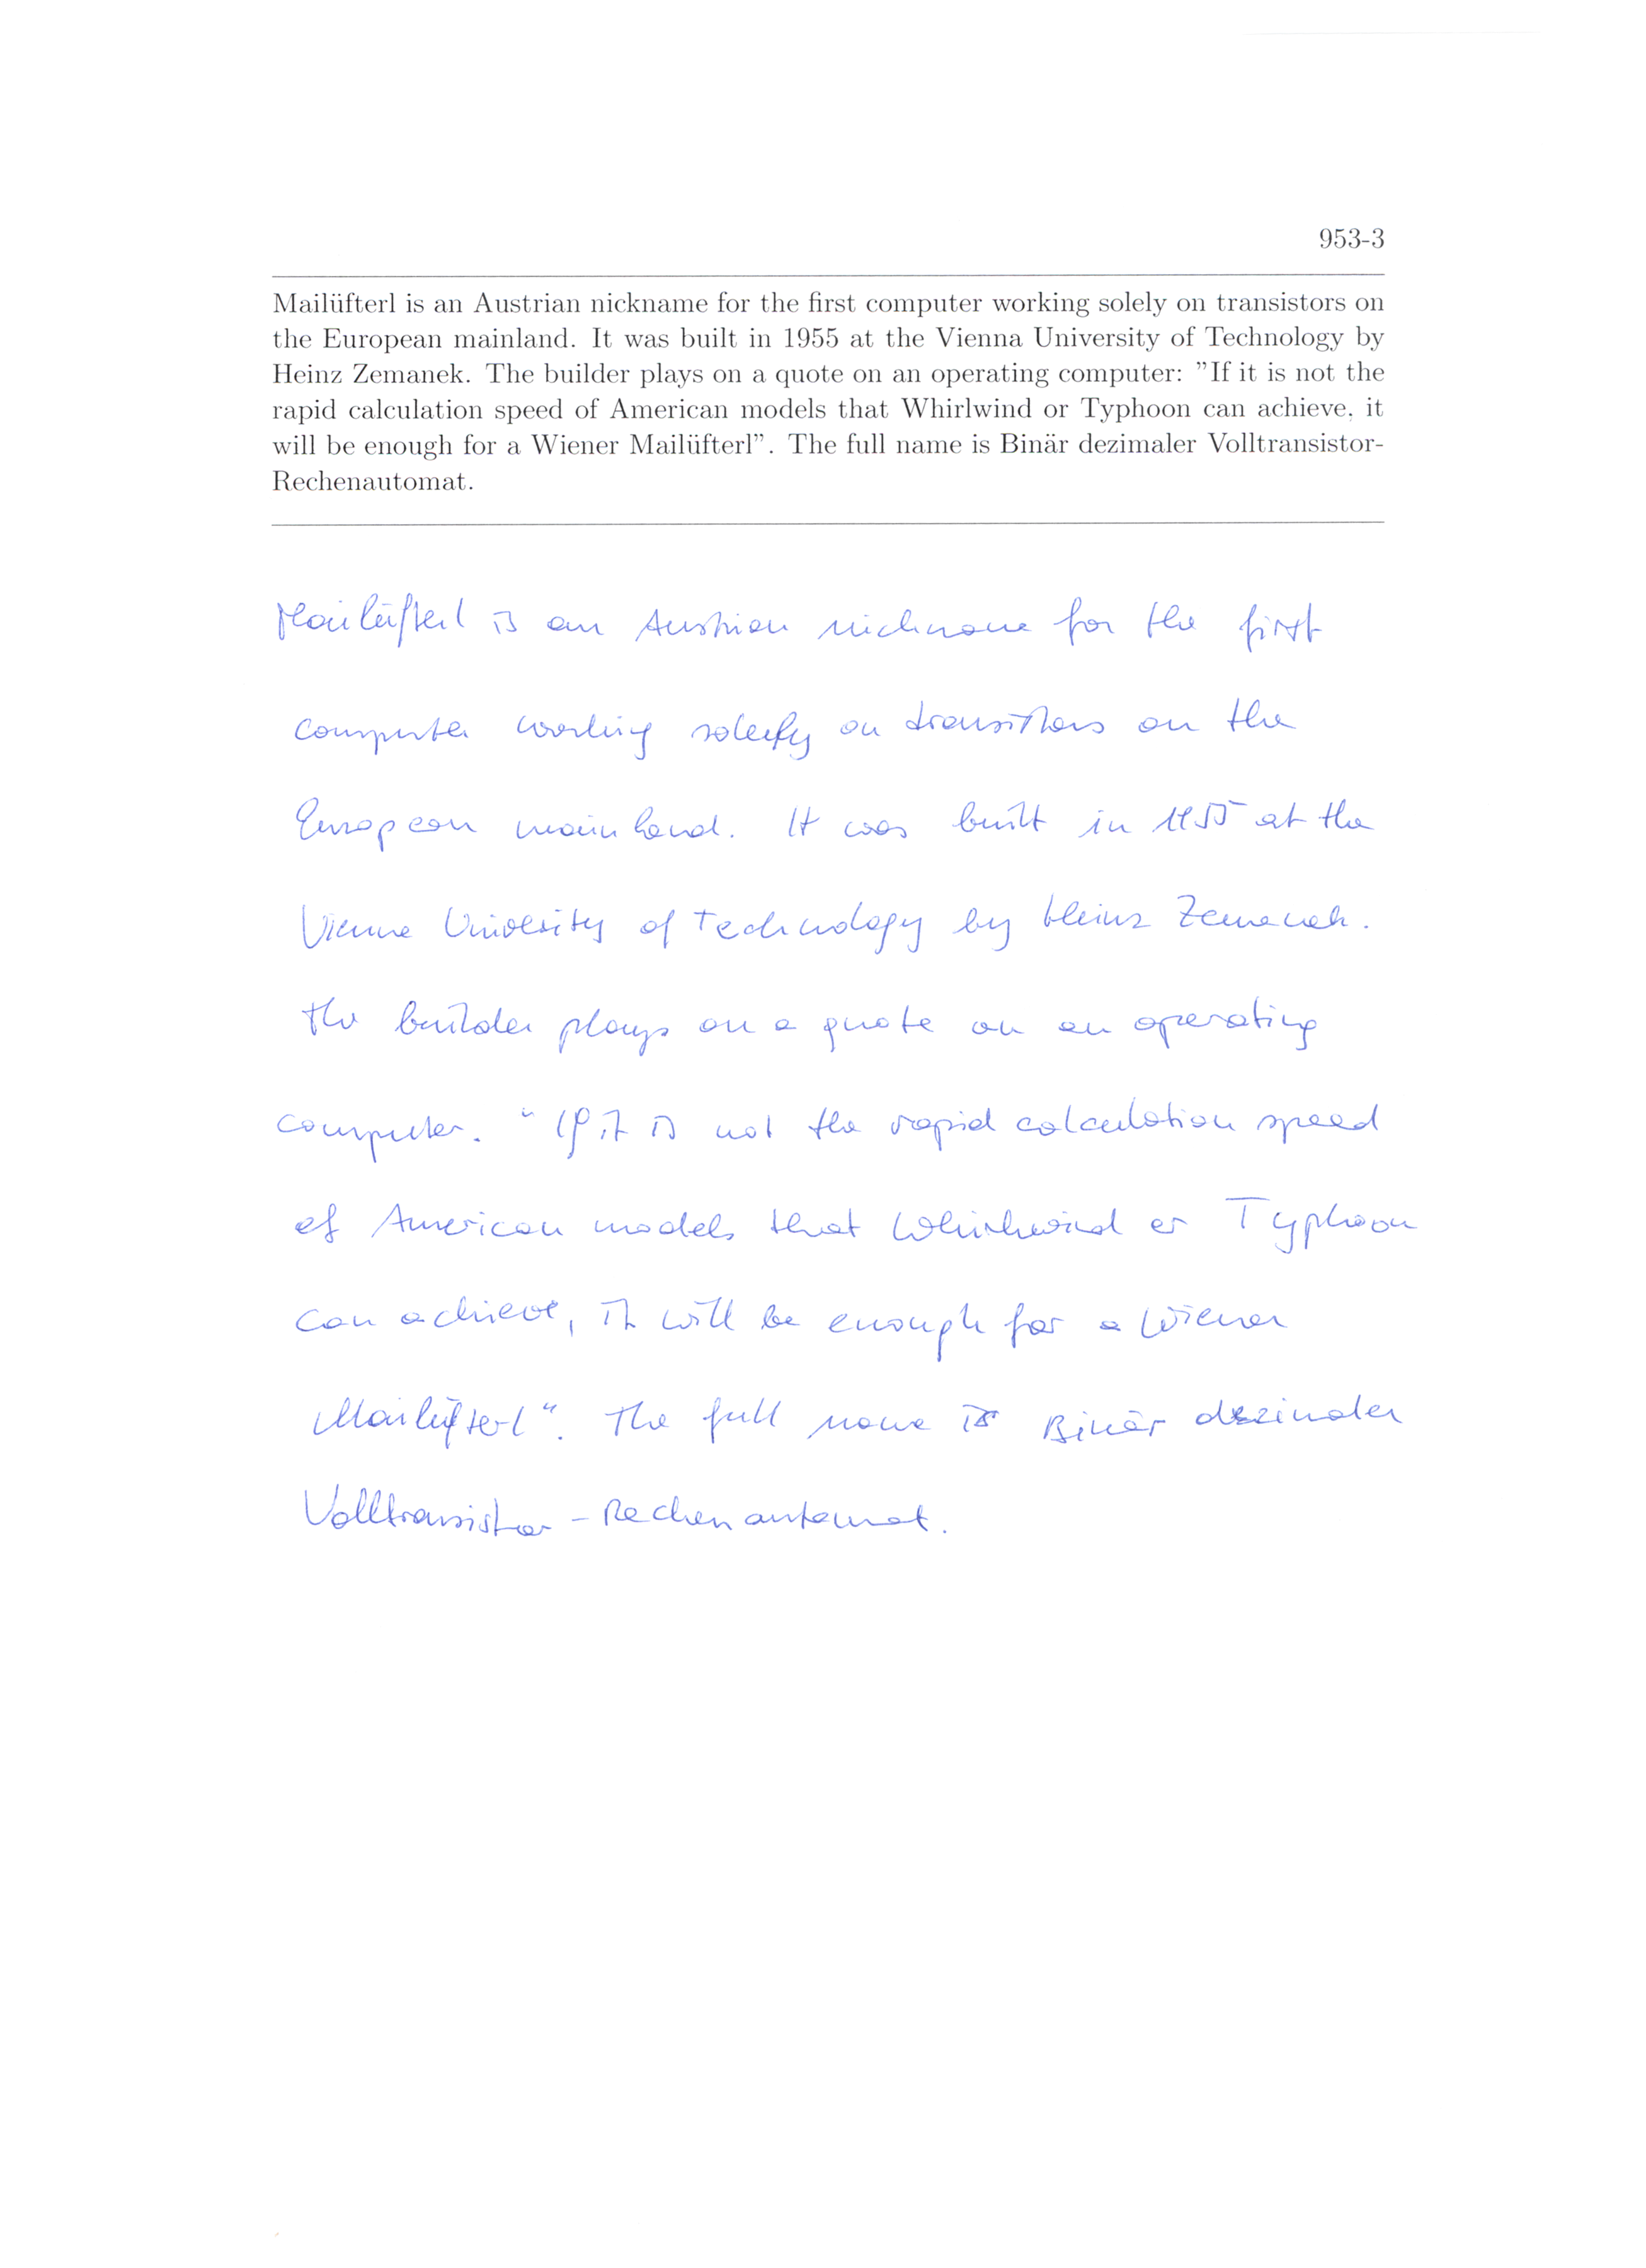 953-3
Mailüfterl is an Austrian nickname for the first computer working solely on transistors on
the European mainland. It was built in 1955 at the Vienna University of Technology by
Heinz Zemanek. The builder plays on a quote on an operating computer: ”If it is not the
rapid calculation speed of American models that Whirlwind or Typhoon can achieve, it
will be enough for a Wiener Mailüfterl”. The full name is Binär dezimaler Volltransistor-
Rechenautomat.
Mailüfterl is an Austrian nickname for the first
computer working solely on transistors on the
European mainland. It was built in 1955 at the
Vienna University of Technology by Heinz Zemanek.
The builder plays on a quote on an operating
computer. "If it is not the rapid calculation speed
of American models that Whirlwind or Typhoon
can achieve, it will be enough for a Wiener
Mailüfterl“. The full name is Binär dezimaler
Volltransistor - Rechenautomat.